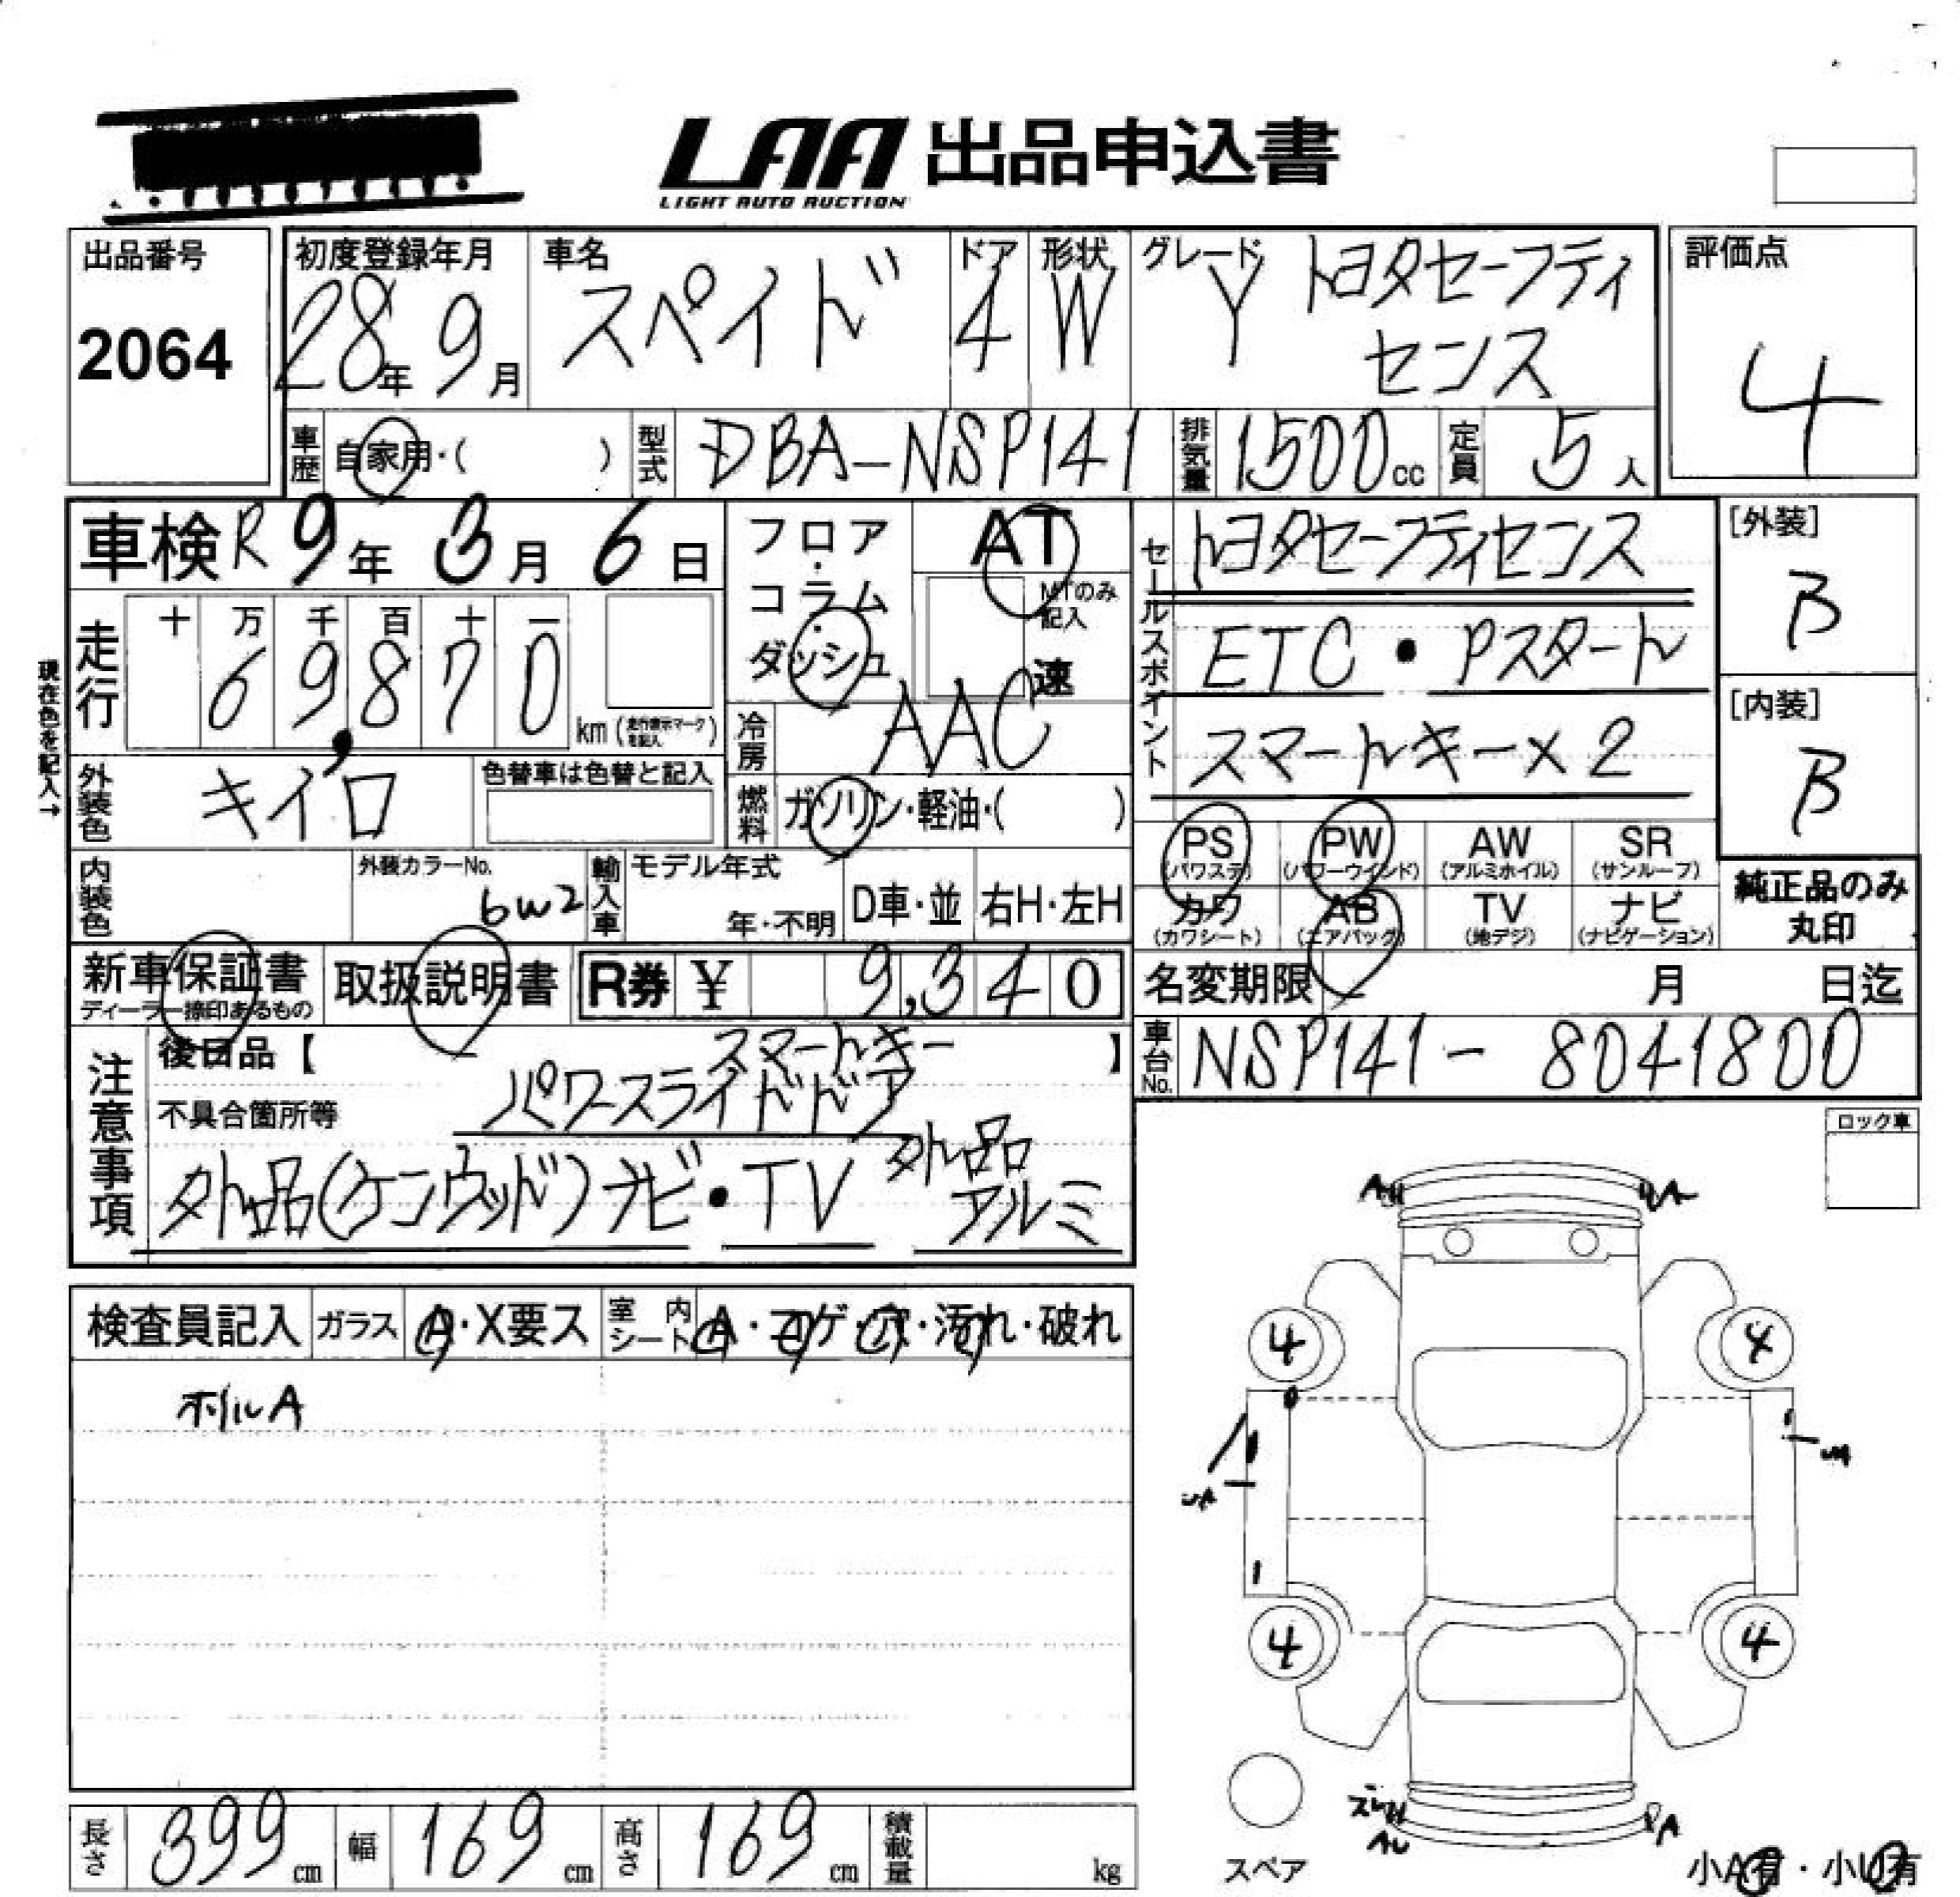 LAA 出品申込書
LIGHT AUTO AUCTION
出品番号
2064
初度登録年月
28年 9月
車名
スペイド
ドア
4
形状
W
グレード
Y トヨタセーフティ
センス
評価点
4
車歴 自家用・( )
型式 DBA-NSP141
排気量 1500cc
定員 5人
車検 R9年 3月 6日
走行 十 万 千 百 十 一
69,870 km (走行表示マークを記入)
現在色を記入→
フロア・コラム・ダッシュ
AT
MTのみ記入
速
冷房 AAC
燃料 ガソリン・軽油・( )
セールスポイント
トヨタセーフティセンス
ETC・Pスタート
スマートキー×2
[外装]
B
[内装]
B
外装色 キイロ
色替車は色替と記入
内装色
外装カラーNo.
6W2
輸入車 モデル年式
年・不明
D車・並
右H・左H
PS (パワステ)
PW (パワーウインド)
AW (アルミホイル)
SR (サンルーフ)
カワ (カワシート)
AB (エアバッグ)
TV (地デジ)
ナビ (ナビゲーション)
純正品のみ
丸印
新車保証書
ディーラー捺印あるもの
取扱説明書
R券 ¥ 9,340
名変期限 月 日迄
車台No. NSP141-8041800
注意事項
後日品【 】
スマートキー
不具合箇所等
パワースライドドア
外品(ケンウッド)ナビ・TV 外品
アルミ
ロック車
検査員記入
ガラス A・X要ス
室内シート A・コゲ・穴・汚れ・破れ
ホイルA
4
4
4
4
スペア
小A有・小U有
長さ 399cm
幅 169cm
高さ 169cm
積載量 kg